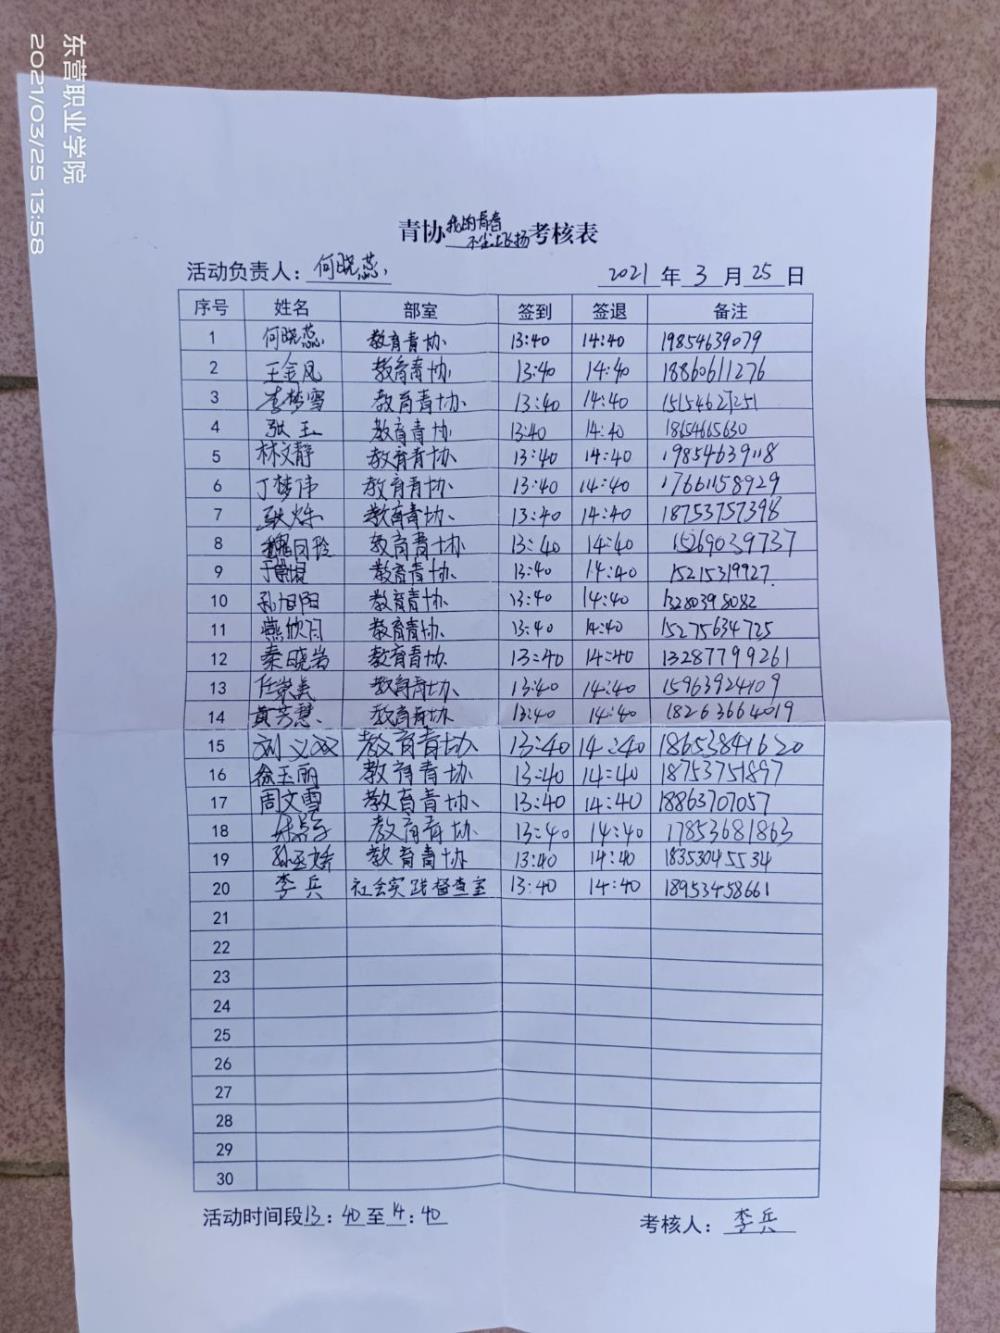 东营职业学院
2021/03/25 13:58
青协我的青春不尘土飞扬考核表
活动负责人：何晓蕊 2021年3月25日
序号 姓名 部室 签到 签退 备注
1 何晓蕊 教育青协 13:40 14:40 19854639079
2 王金凤 教育青协 13:40 14:40 18860611276
3 李梦雪 教育青协 13:40 14:40
4 张玉 教育青协 13:40 14:40 18654665630
5 林文静 教育青协 13:40 14:40 19854639118
6 丁梦伟 教育青协 13:40 14:40 17661158929
7 教育青协 13:40 14:40 18753757398
8 教育青协 13:40 14:40 15269039737
9 教育青协 13:40 14:40 15215319927
10 孔旭阳 教育青协 13:40 14:40 13280398082
11 燕欣月 教育青协 13:40 14:40 15275634725
12 秦晓岩 教育青协 13:40 14:40 13287799261
13 任崇美 教育青协 13:40 14:40 15963924109
14 黄芳慧 教育青协 13:40 14:40 18263664019
15 刘义双 教育青协 13:40 14:40 18653841620
16 徐玉丽 教育青协 13:40 14:40 18753751897
17 周文雪 教育青协 13:40 14:40 18863707057
18 教育青协 13:40 14:40 17853681863
19 教育青协 13:40 14:40 18353045534
20 李兵 社会实践督查室 13:40 14:40 18953458661
21
22
23
24
25
26
27
28
29
30
活动时间段13:40至14:40 考核人：李兵